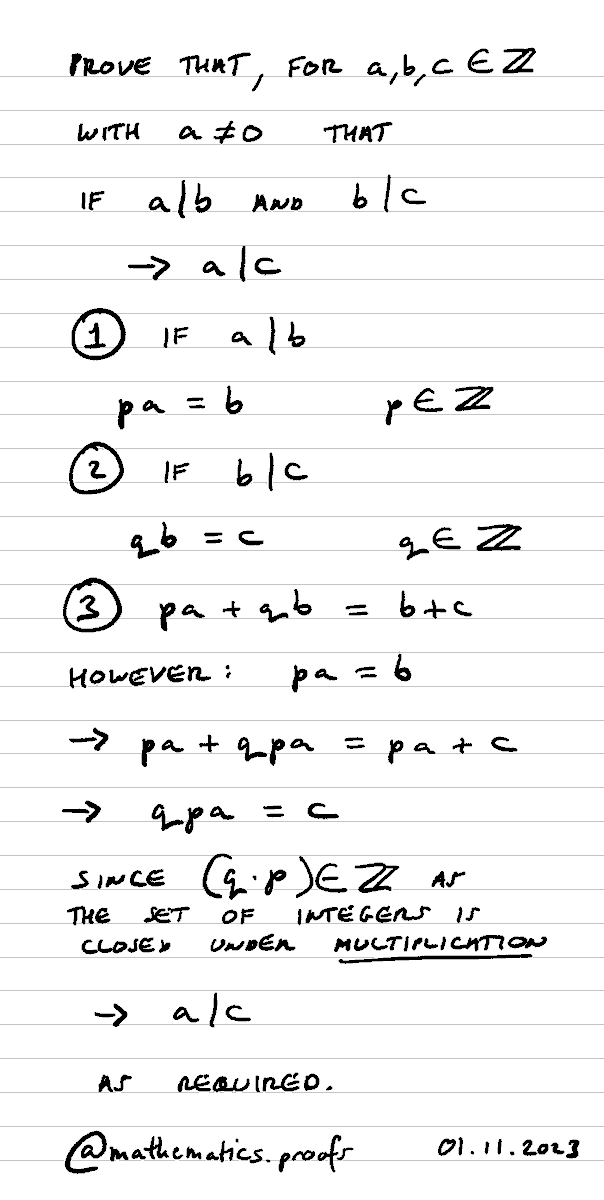 PROVE THAT, FOR a,b,c ∈ ℤ
WITH a ≠ 0 THAT
IF a|b AND b|c
→ a|c
① IF a|b
pa = b p ∈ ℤ
② IF b|c
qb = c q ∈ ℤ
③ pa + qb = b+c
HOWEVER: pa = b
→ pa + qpa = pa + c
→ qpa = c
SINCE (q·p) ∈ ℤ AS
THE SET OF INTEGERS IS
CLOSED UNDER MULTIPLICATION
→ a|c
AS REQUIRED.
@mathematics.proofs 01.11.2023